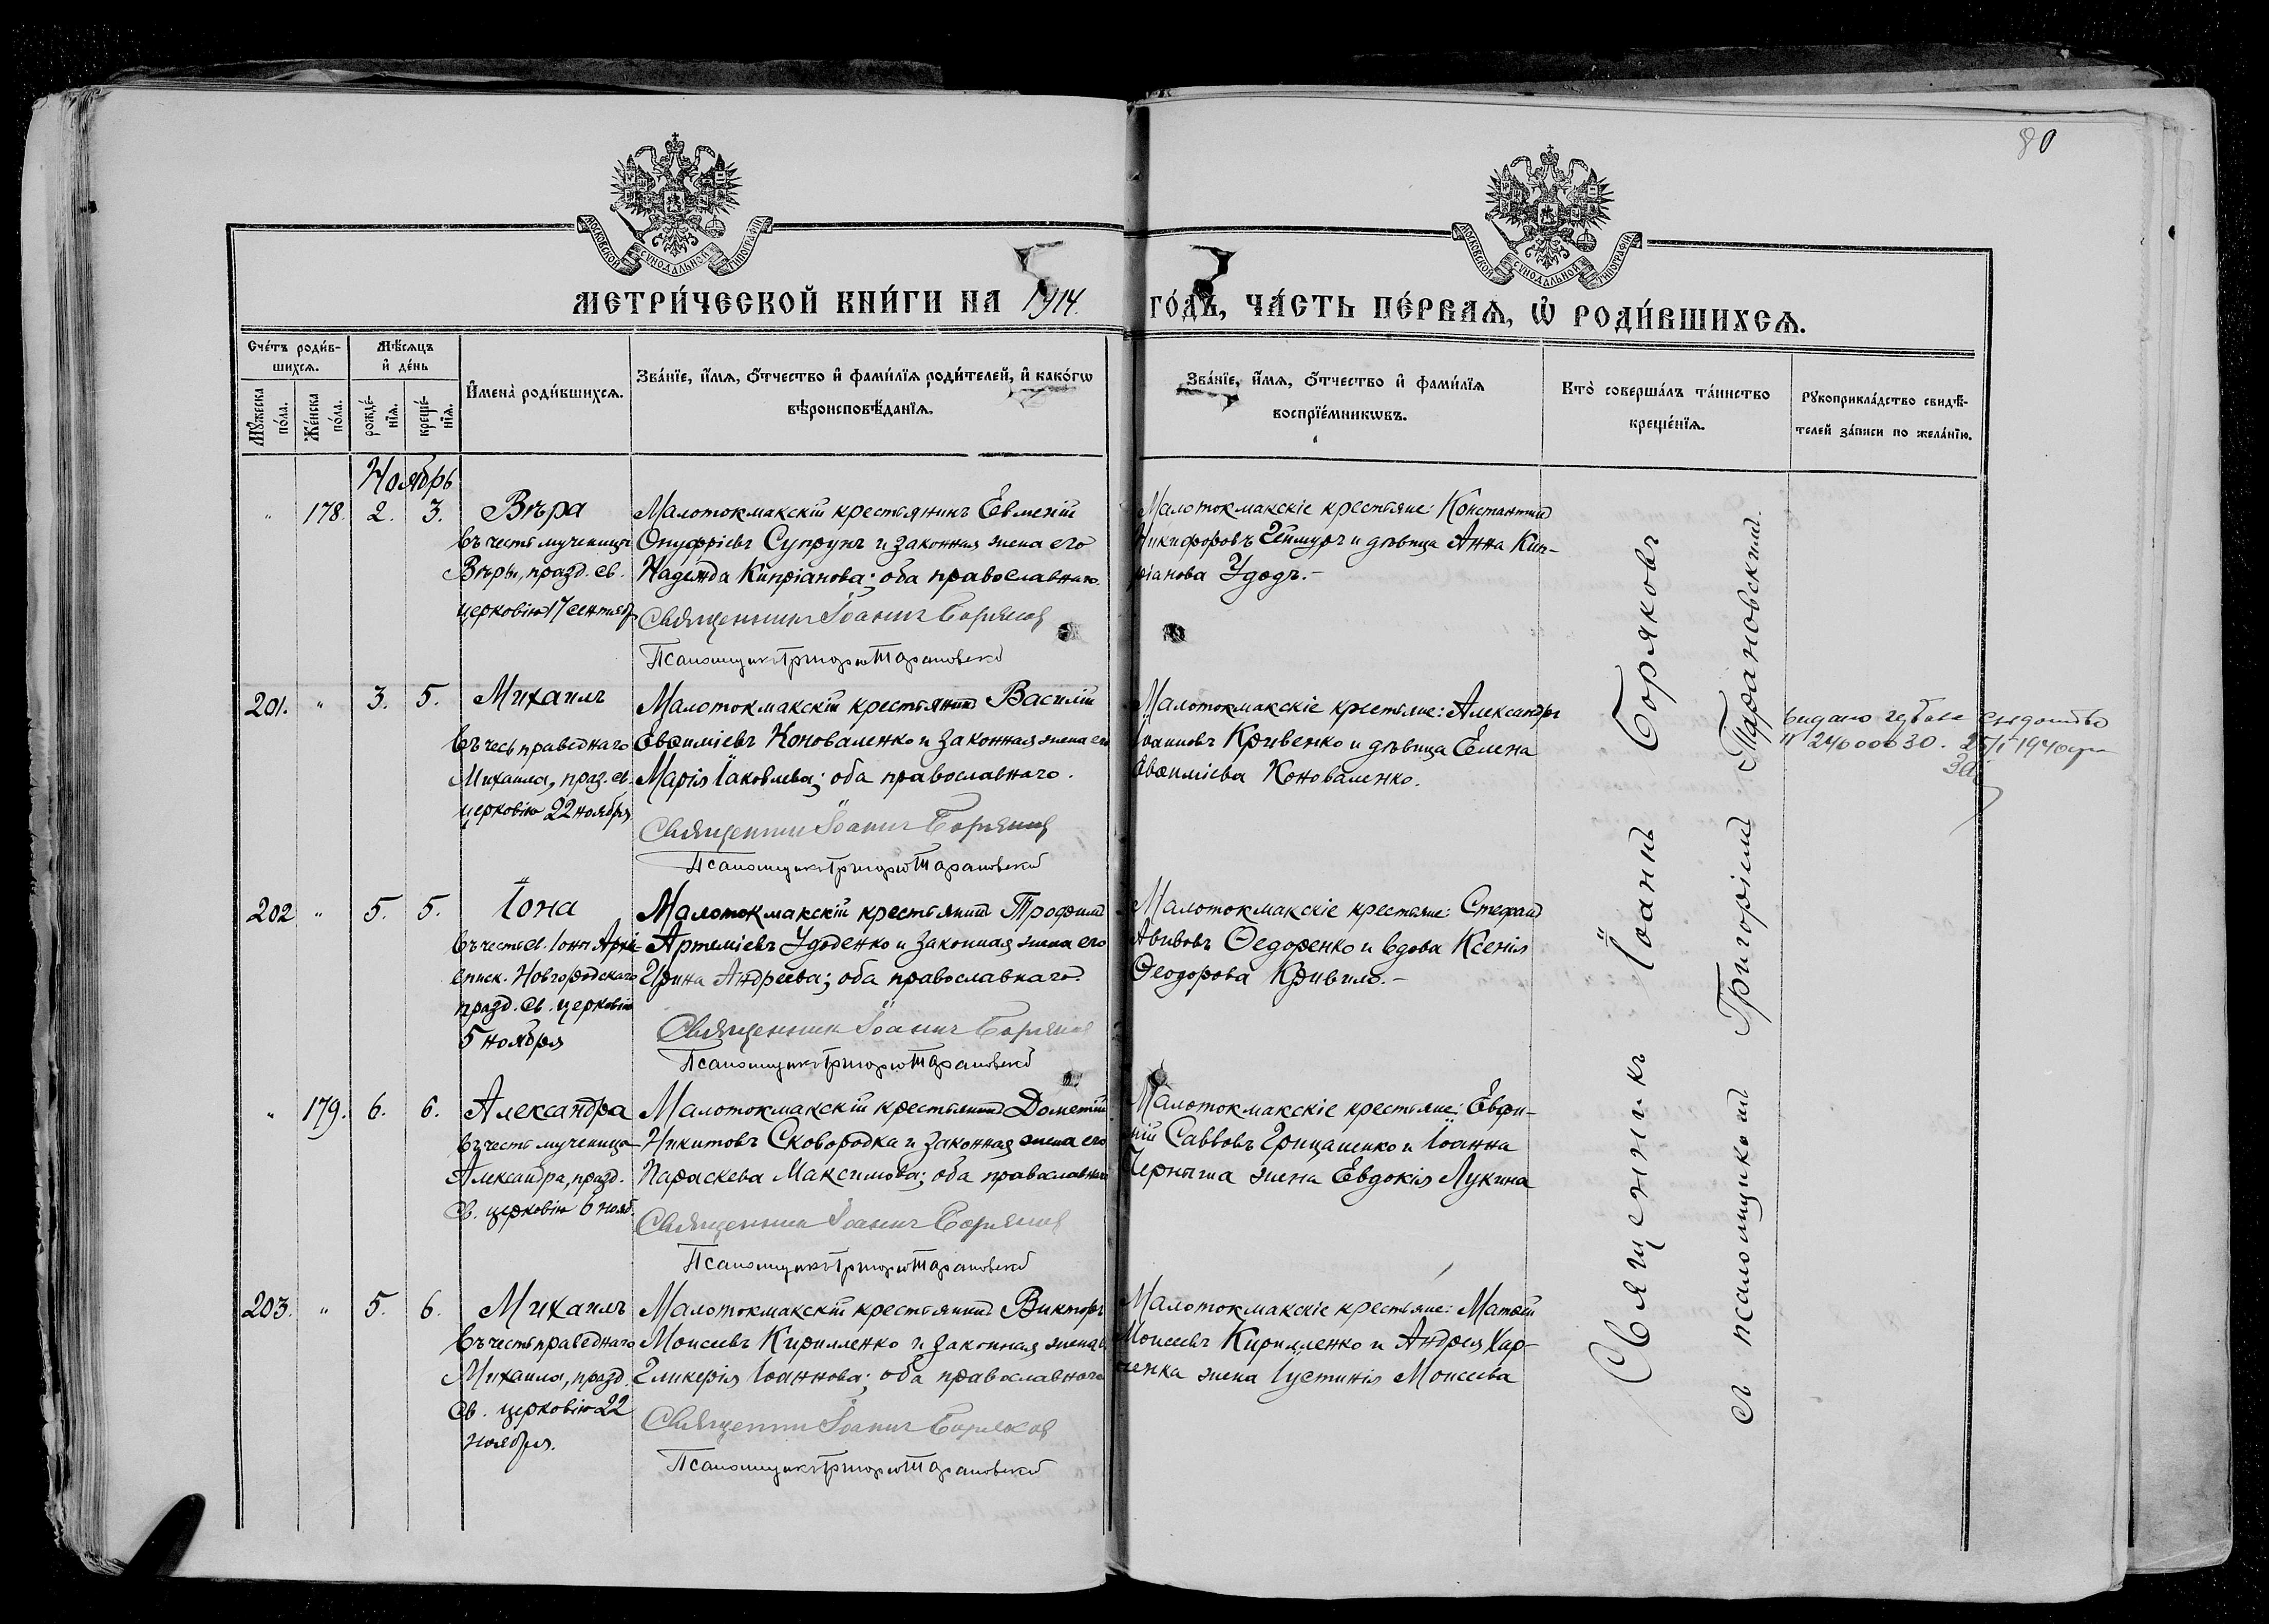 80
МОСКОВСКОЙ СѴНОДАЛЬНОЙ ТИПОГРАФІИ
МОСКОВСКОЙ СѴНОДАЛЬНОЙ ТИПОГРАФІИ
МЕТРИ́ЧЕСКОЙ КНИ́ГИ НА 1914. ГО́ДЪ, ЧА́СТЬ ПЕ́РВАѦ, Ѡ҆ РОДИ́ВШИХСѦ.
Сче́тъ роди́в-
шихсѧ.
Мѣ́сѧцъ
и҆ де́нь
Мꙋ́жеска по́ла.
Же́нска по́ла.
рожде́-нїѧ.
креще́-нїѧ.
И҆мена̀ роди́вшихсѧ.
Зва́нїе, и҆́мѧ, ѻ҆́тчество и҆ фами́лїѧ роди́телей, и҆ како́гѡ
вѣроисповѣ́данїѧ.
Зва́нїе, и҆́мѧ, ѻ҆́тчество и҆ фами́лїѧ
воспрїе́мникѡвъ.
Кто̀ соверша́лъ та́инство
креще́нїѧ.
Рꙋкоприкла́дство свидѣ́-
телей за́писи по жела́нїю.
Ноябрь
" 178. 2. 3. Вѣра
въ честь мученицы
Вѣры, празд. св.
церковію 17 сентяб.
Малотокмакскій крестьянинъ Евменій
Онуфріевъ Супрунъ и законная жена его
Надежда Кипріанова; оба православнаго.
Священникъ Іоаннъ Боряковъ
Псаломщикъ Григорій Тарановскій
Малотокмакскіе крестьяне: Константинъ
Никифоровъ и дѣвица Анна Кип-
ріанова Удодъ.-
201. " 3. 5. Михаилъ
въ чесь праведнаго
Михаила, праз. св.
церковію 22 ноября
Малотокмакскій крестьянинъ Василій
Евѳиміевъ Коноваленко и законная жена его
Марія Іаковлева; оба православнаго.
Священникъ Іоаннъ Боряковъ
Псаломщикъ Григорій Тарановскій
Малотокмакскіе крестьяне: Александръ
Іоанновъ Кривенко и дѣвица Елена
Евѳиміева Коноваленко.
видано
24000030.
202 " 5. 5. Іона
въ честь св. Іоны Архі-
еписк. Новгородскаго
празд. св. церковію
5 ноября
Малотокмакскій крестьянинъ Трофимъ
Артеміевъ Удоденко и законная жена его
Ирина Андреева; оба православнаго.
Священникъ Іоаннъ Боряковъ
Псаломщикъ Григорій Тарановскій
Малотокмакскіе крестьяне: Стефанъ
Авивовъ Ѳедоренко и вдова Ксенія
Ѳеодорова
" 179. 6. 6. Александра
въ честь мученицы
Александры, празд.
св. церковію 6 нояб.
Малотокмакскій крестьянинъ Дометій
Никитовъ Сковородка и законная жена его
Параскева Максимова; оба православнаго
Священникъ Іоаннъ Боряковъ
Псаломщикъ Григорій Тарановскій
Малотокмакскіе крестьяне: Евфи-
мій Саввовъ Грицаненко и Іоанна
Черныша жена Евдокія Лукина
203. " 5. 6. Михаилъ
въ честь праведнаго
Михаила, празд.
св. церковію 22
ноября.
Малотокмакскій крестьянинъ Викторъ
Моисеевъ Кириленко и законная жена его
Гликерія Іоаннова; оба православнаго
Священникъ Іоаннъ Боряковъ
Псаломщикъ Григорій Тарановскій
Малотокмакскіе крестьяне: Матѳій
Моисеевъ Кириленко и Андрея Хар-
ченка жена Іустинія Моисеева
Священникъ Іоаннъ Боряковъ
съ псаломщикомъ Григоріемъ Тарановскимъ.